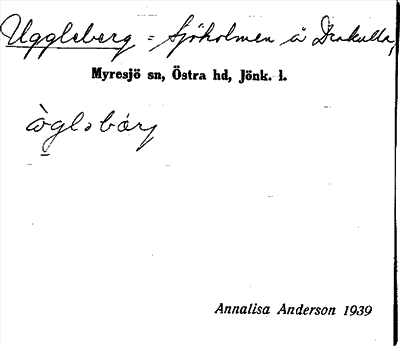 Uggleberg = Sjöholmen å Drakulla,
Myresjö sn, Östra hd, Jönk. l.
Annalisa Anderson 1939